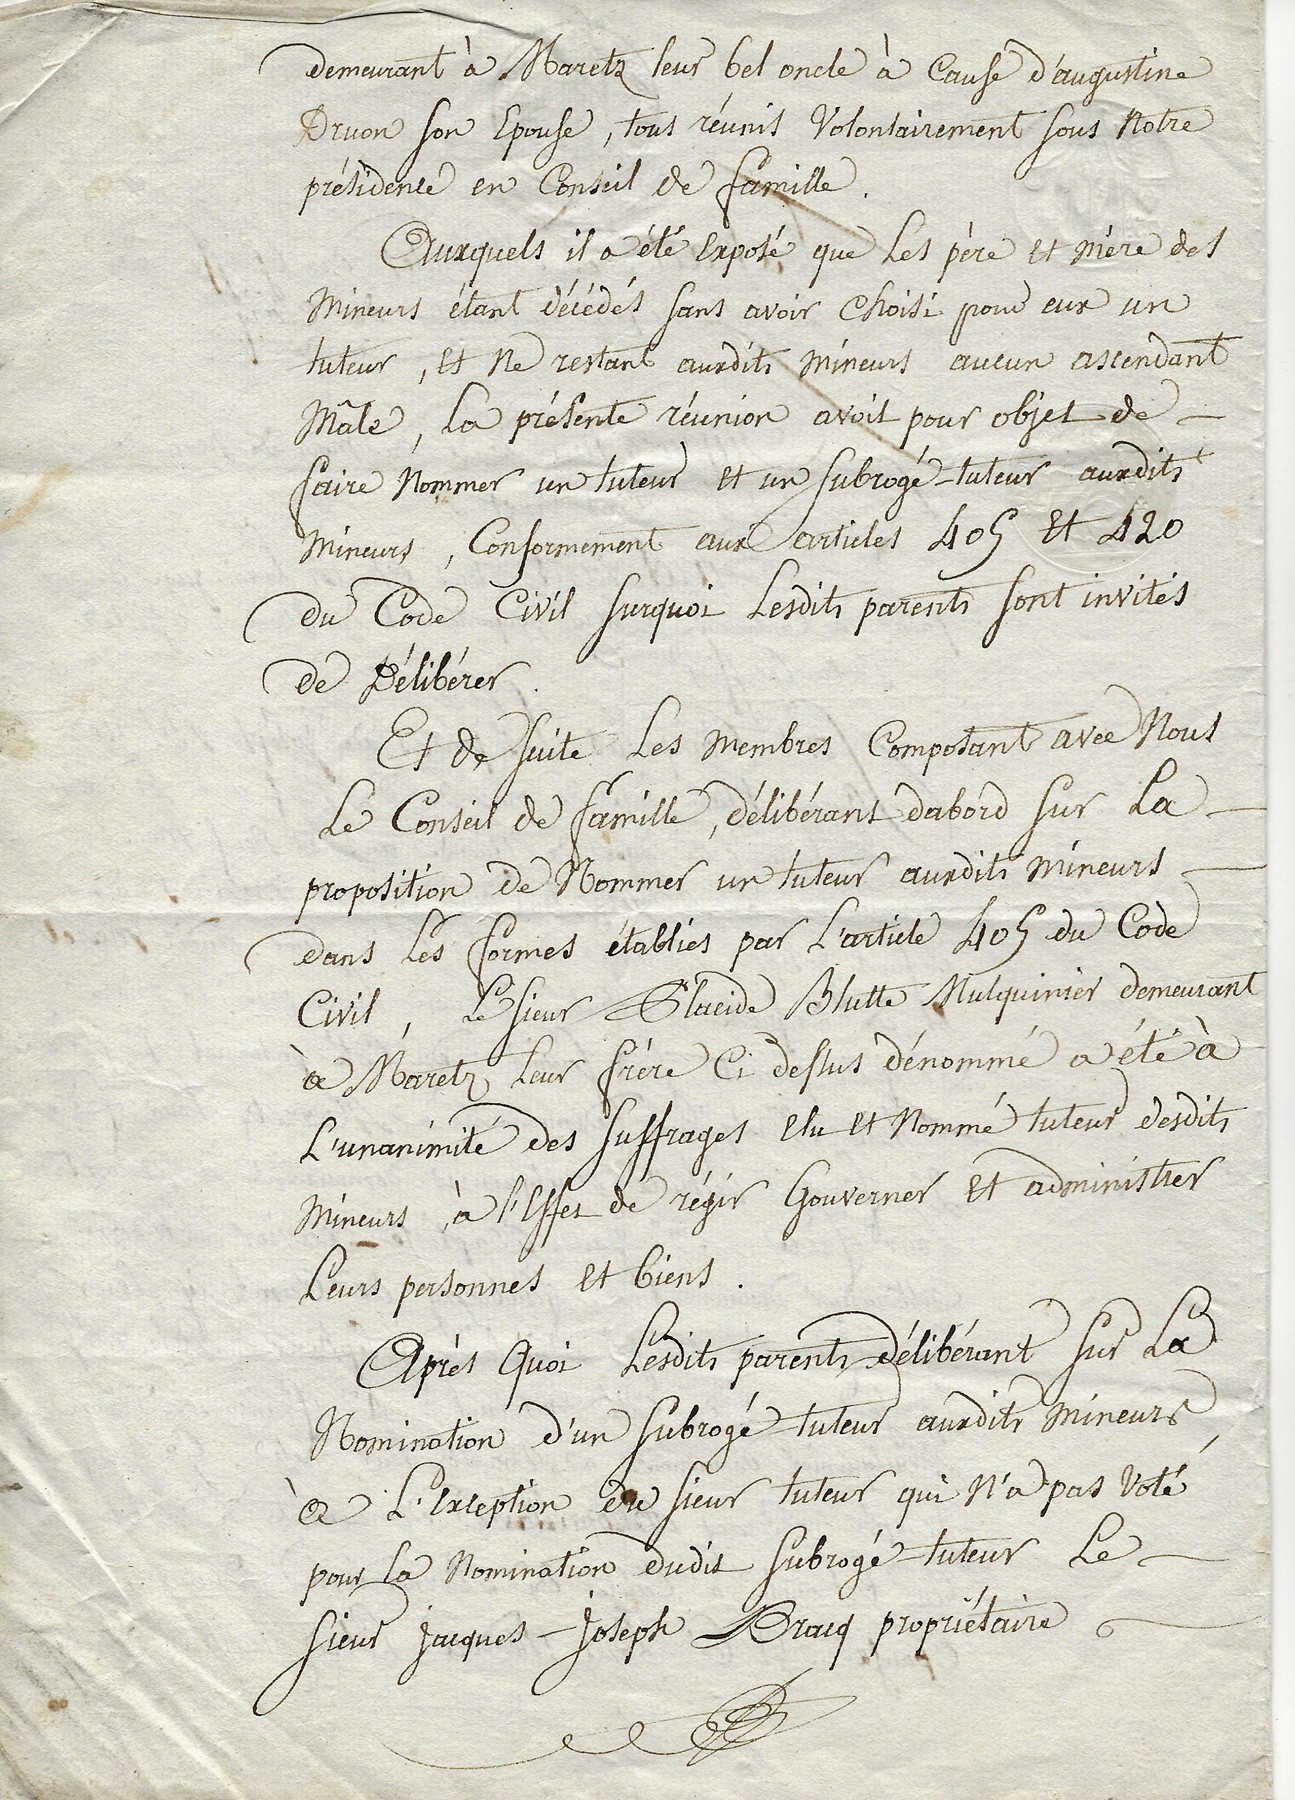 demeurant à Maretz leur bel oncle à Cause d'augustine
Druon son Epouse, tous réunis Volontairement sous Notre
présidence en Conseil de famille.
Auxquels il a été Exposé que Les père et mère des
Mineurs étant décédés sans avoir Choisi pour eux un
tuteur, et Ne restant auxdits mineurs aucun ascendant
Mâle, La présente réunion avoit pour objet de
faire Nommer un tuteur et un subrogé-tuteur auxdits
Mineurs, Conformement aux articles 405 et 420
du Code Civil surquoi Lesdits parents sont invités
de Délibérer.
Et de suite Les Membres Composant avec Nous
Le Conseil de famille, délibérant dabord sur La
proposition de Nommer un tuteur auxdits mineurs
dans Les formes établies par L'article 405 du Code
Civil, Le sieur Placide Blutte Mulquinier demeurant
à Maretz Leur frère Ci dessus dénommé a été à
L'unanimité des suffrages Elu et Nommé tuteur desdits
Mineurs, à l'Effet de régir Gouverner et administrer
Leurs personnes et biens.
Après Quoi Lesdits parents délibérant sur La
Nomination d'un subrogé-tuteur auxdits mineurs,
à L'exception du sieur tuteur qui N'a pas Voté
pour La Nomination dudit subrogé-tuteur Le
sieur jacques-joseph Bracq propriétaire